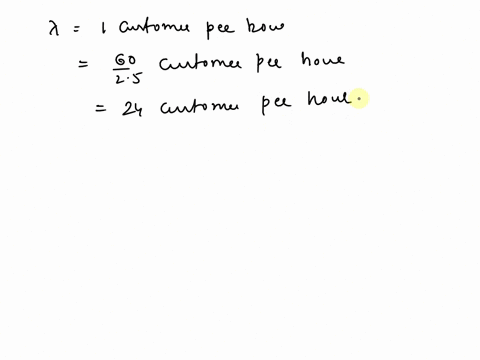 λ = 1 customer per hour
= 60/2.5 customer per hour
= 24 customer per hour.